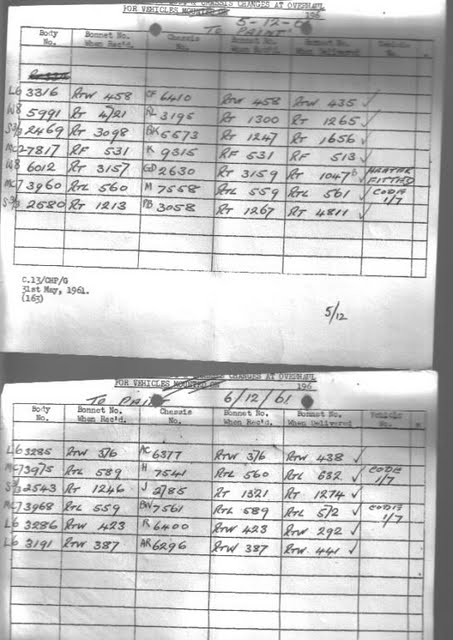 CHASSIS CHANGES AT OVERHAUL
FOR VEHICLES 196
5-12-6
TO PAINT
Body No. Bonnet No. When Rec'd. Chassis No. Bonnet No. When Rec'd. Bonnet No. When Delivered Vehicle No.
L6 3316 RTW 458 6410 RTW 458 RTW 435 ✓
W8 5991 RT 4121 3195 RT 1300 RT 1265 ✓
S3/3 2469 RT 3098 5573 RT 1247 RT 1656 ✓
MC2 7817 RF 531 K 9315 RF 531 RF 513 ✓
W8 6012 RT 3157 GD 2630 RT 3159 RT 1047 ✓ HEATER FITTED
MC7 3960 RTL 560 M 7558 RTL 559 RTL 561 ✓ CODE 1/7
S3/3 2680 RT 1213 PB 3058 RT 1267 RT 4811 ✓
C.13/CHP/G
31st May, 1961.
(163)
5/12
CHASSIS CHANGES AT OVERHAUL
FOR VEHICLES 196
TO PAINT 6/12/61
Body No. Bonnet No. When Rec'd. Chassis No. Bonnet No. When Rec'd. Bonnet No. When Delivered Vehicle No.
L6 3285 RTW 316 AC 6377 RTW 316 RTW 438 ✓
MC7 3975 RTL 589 H 7541 RTL 560 RTL 632 ✓ CODE 1/7
S3/3 2543 RT 1246 J 2785 RT 1321 RT 1274 ✓
MC7 3968 RTL 559 BW 7561 RTL 589 RTL 512 ✓ CODE 1/7
L6 3286 RTW 423 R 6400 RTW 423 RTW 292 ✓
L6 3191 RTW 387 AR 6296 RTW 387 RTW 441 ✓